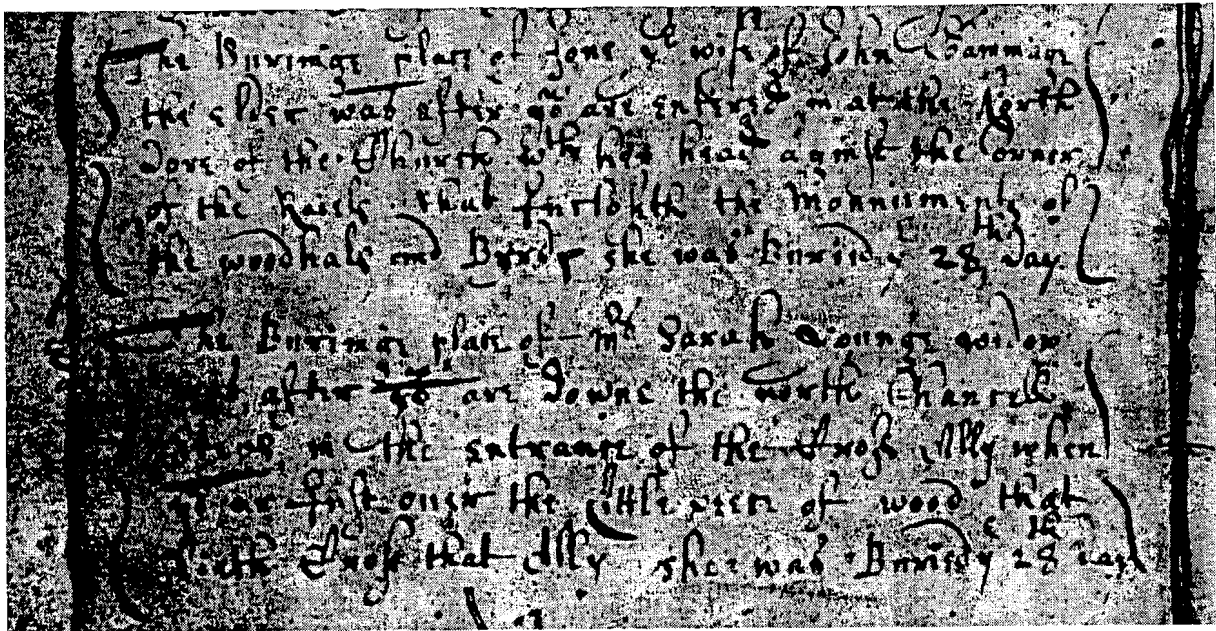 The Buringe place of Jone ye wife of John Gammage
the elder was after yow are entered in at the North
dore of the Church wth her head against the corner
of the Raiels that Incloseth the Monnuments of
the woodhals and Byrd she was Buried ye 28th day
The Buringe place of Mrs Sarah Younge
after yow are downe the north Chancell
in the entrance of the Cross Ally when
yow are Just over the little peece of wood that
Cross that Ally she was Buried ye 28th day